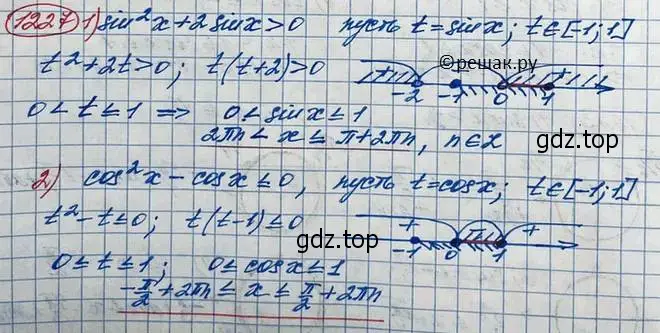 1227 1) sin²x + 2 sinx > 0 пусть t = sinx; t ∈ [-1; 1]
t² + 2t > 0; t(t+2) > 0
©решак.ру
-2 -1 0 1
0 < t ≤ 1 ⇒ 0 < sinx ≤ 1
2πn < x ≤ π + 2πn, n ∈ Z
gdz.top
2) cos²x - cosx ≤ 0, пусть t = cosx; t ∈ [-1; 1]
t² - t ≤ 0; t(t-1) ≤ 0
gdz.top
+ +
-1 0 1
0 ≤ t ≤ 1; 0 ≤ cosx ≤ 1
-π/2 + 2πn ≤ x ≤ π/2 + 2πn